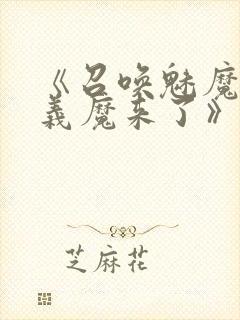 《召唤魅魔
義魔来了》
芝麻花